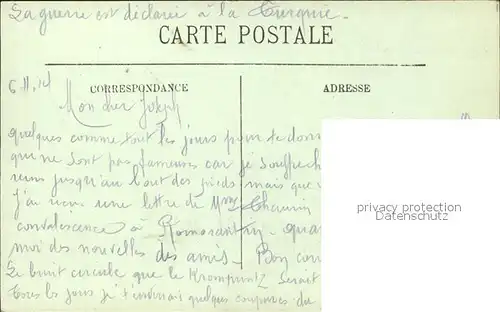 La guerre est déclarée à la Turquie.
CARTE POSTALE
CORRESPONDANCE
ADRESSE
6.11.14
Mon cher Joseph
quelques comme tout les jours pour te donn
qui ne sont pas fameuses car je souffre ch
reins jusqu'au bout des pieds mais que
J'ai une lettre de Mme Chauvin
convalescence à Romorantin - quan
moi des nouvelles des amis - Bon cour
Le bruit circule que le Kronprintz serait
tous les jours je t'envérrais quelques coupures du
privacy protection
Datenschutz